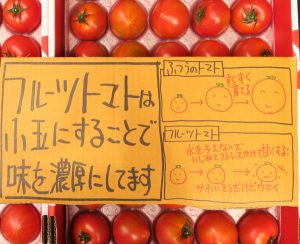 フルーツトマトは
小玉にすることで
味を濃厚にしてます
ふつうのトマト
すくすく
育てる
フルーツトマト
水を与えないで
いじめてストレスかけて甘くする!
かわいそうだけどウマイ